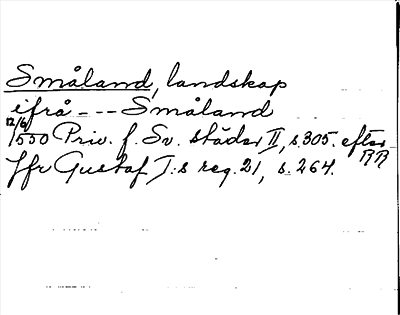 Småland, landskap
ifrå --- Småland
12/6 1550 Priv. f. Sv. städer II, s. 305. efter RR
Jfr Gustaf I:s reg. 21, s. 264.